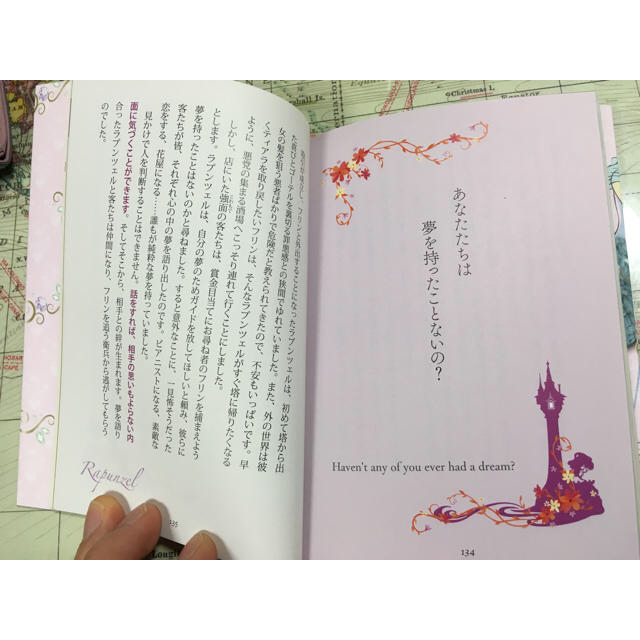 あなたたちは
夢を持ったことないの？
Haven't any of you ever had a dream?
134
取引が成立し、フリンと外出することになったラプンツェルは、初めて塔から出
た喜びとゴーテルを裏切る罪悪感との狭間でゆれていました。また、外の世界は彼
女の髪を狙う悪者ばかりで危険だと教えられてきたので、不安もいっぱいです。早
くティアラを取り戻したいフリンは、そんなラプンツェルがすぐ塔に帰りたくなる
ように、悪党の集まる酒場へこっそり連れて行くことにしました。
しかし、店にいた強面の客たちは、賞金目当てにお尋ね者のフリンを捕まえよう
とします。ラプンツェルは、自分の夢のためガイドを放してほしいと頼み、彼らに
夢を持ったことはないのかと尋ねました。すると意外なことに、一見怖そうだった
客たちが皆、それぞれ心の中の夢を語り出したのです。ピアニストになる、素敵な
恋をする、花屋になる……誰もが純粋な夢を持っていました。
見かけで人を判断することはできません。話をすれば、相手の思いもよらない内
面に気づくことができます。そしてそこから、相手との絆が生まれます。夢を語り
合ったラプンツェルと客たちは仲間になり、フリンを追う衛兵から逃がしてもらう
のでした。
Rapunzel
135
Christmas I.
Equator